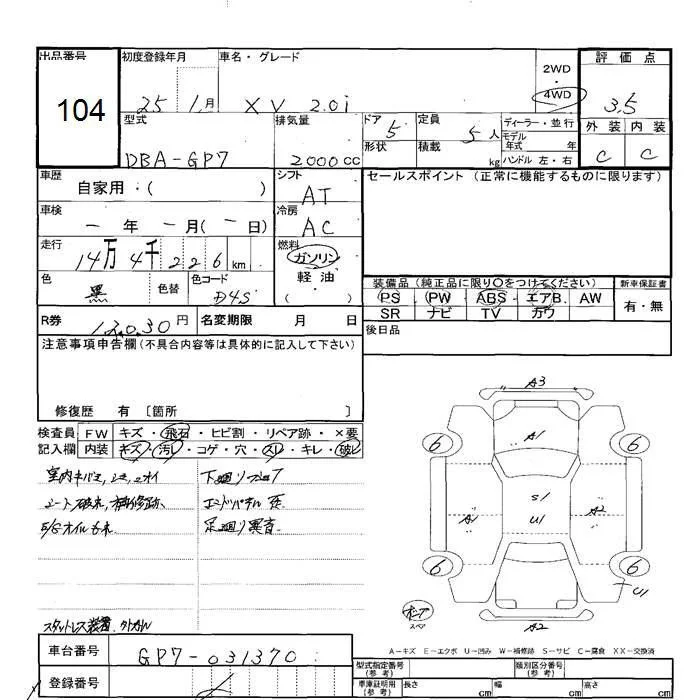 出品番号
104
初度登録年月
25 1月
車名・グレード
XV 2.0i
2WD
4WD
評価点
3.5
外装 内装
C C
型式
DBA-GP7
排気量
2000cc
ドア 5
形状
定員 5人
積載 kg
ディーラー・並行
モデル年式 年
ハンドル 左・右
車歴
自家用:( )
シフト
AT
セールスポイント (正常に機能するものに限ります)
車検
— 年 — 月( — 日)
冷房
AC
走行
14万4千226km
燃料
ガソリン
軽油
( )
色
黒
色替
色コード
D4S
装備品(純正品に限り○をつけてください)
新車保証書
PS PW ABS エアB AW
有・無
SR ナビ TV カワ
R券
12,030円
名変期限 月 日
後日品
注意事項申告欄(不具合内容等は具体的に記入して下さい)
修復歴 有 〔箇所 〕
検査員 FW キズ・飛石・ヒビ割・リペア跡・×要
記入欄 内装 キズ・汚レ・コゲ・穴・スレ・キレ・破レ
シート破れ,補修跡,
エンドパネル
E/Gオイルもれ
足廻り異音
スタットレス装着
A3
6 A1 6
A1 S1 A2
U1
6 6
U1
スペア
A2
A-キズ E-エクボ U-凹み W-補修跡 S-サビ C-腐食 XX-交換済
車台番号
GP7-031370
登録番号
型式指定番号(参考)
類別区分番号(参考)
車庫証明用(参考) 長さ cm 幅 cm 高さ cm